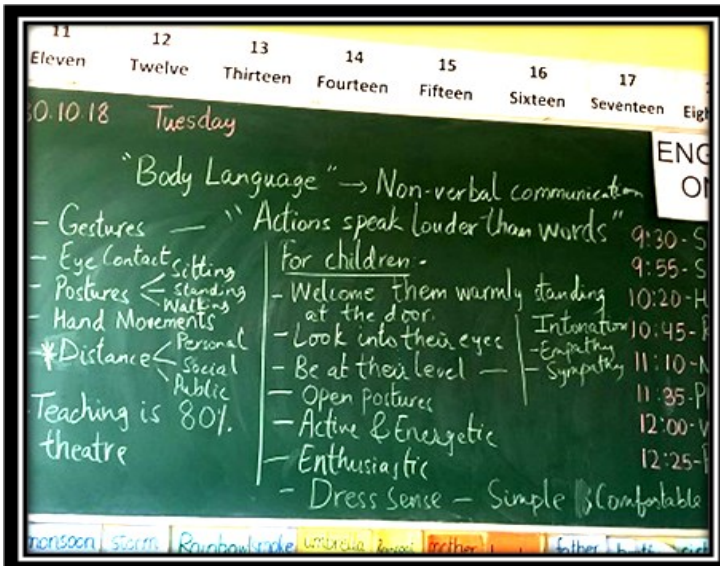 11 12 13 14 15 16 17
Eleven Twelve Thirteen Fourteen Fifteen Sixteen Seventeen
30.10.18 Tuesday
"Body Language" → Non-verbal communication
- Gestures — "Actions speak louder than words"
- Eye Contact
- Postures < Sitting
Standing
Walking
- Hand Movements
* Distance < Personal
Social
Public
Teaching is 80%
theatre
For children -
- Welcome them warmly standing
at the door.
- Look into their eyes
- Be at their level —
- Open postures
- Active & Energetic
- Enthusiastic
- Dress Sense - Simple & Comfortable
Intonation
- Empathy
- Sympathy
9:30-S
9:55-S
10:20-H
10:45-
11:10-
11:35-P
12:00-
12:25-
monsoon storm Rainbow smoke umbrella mother father